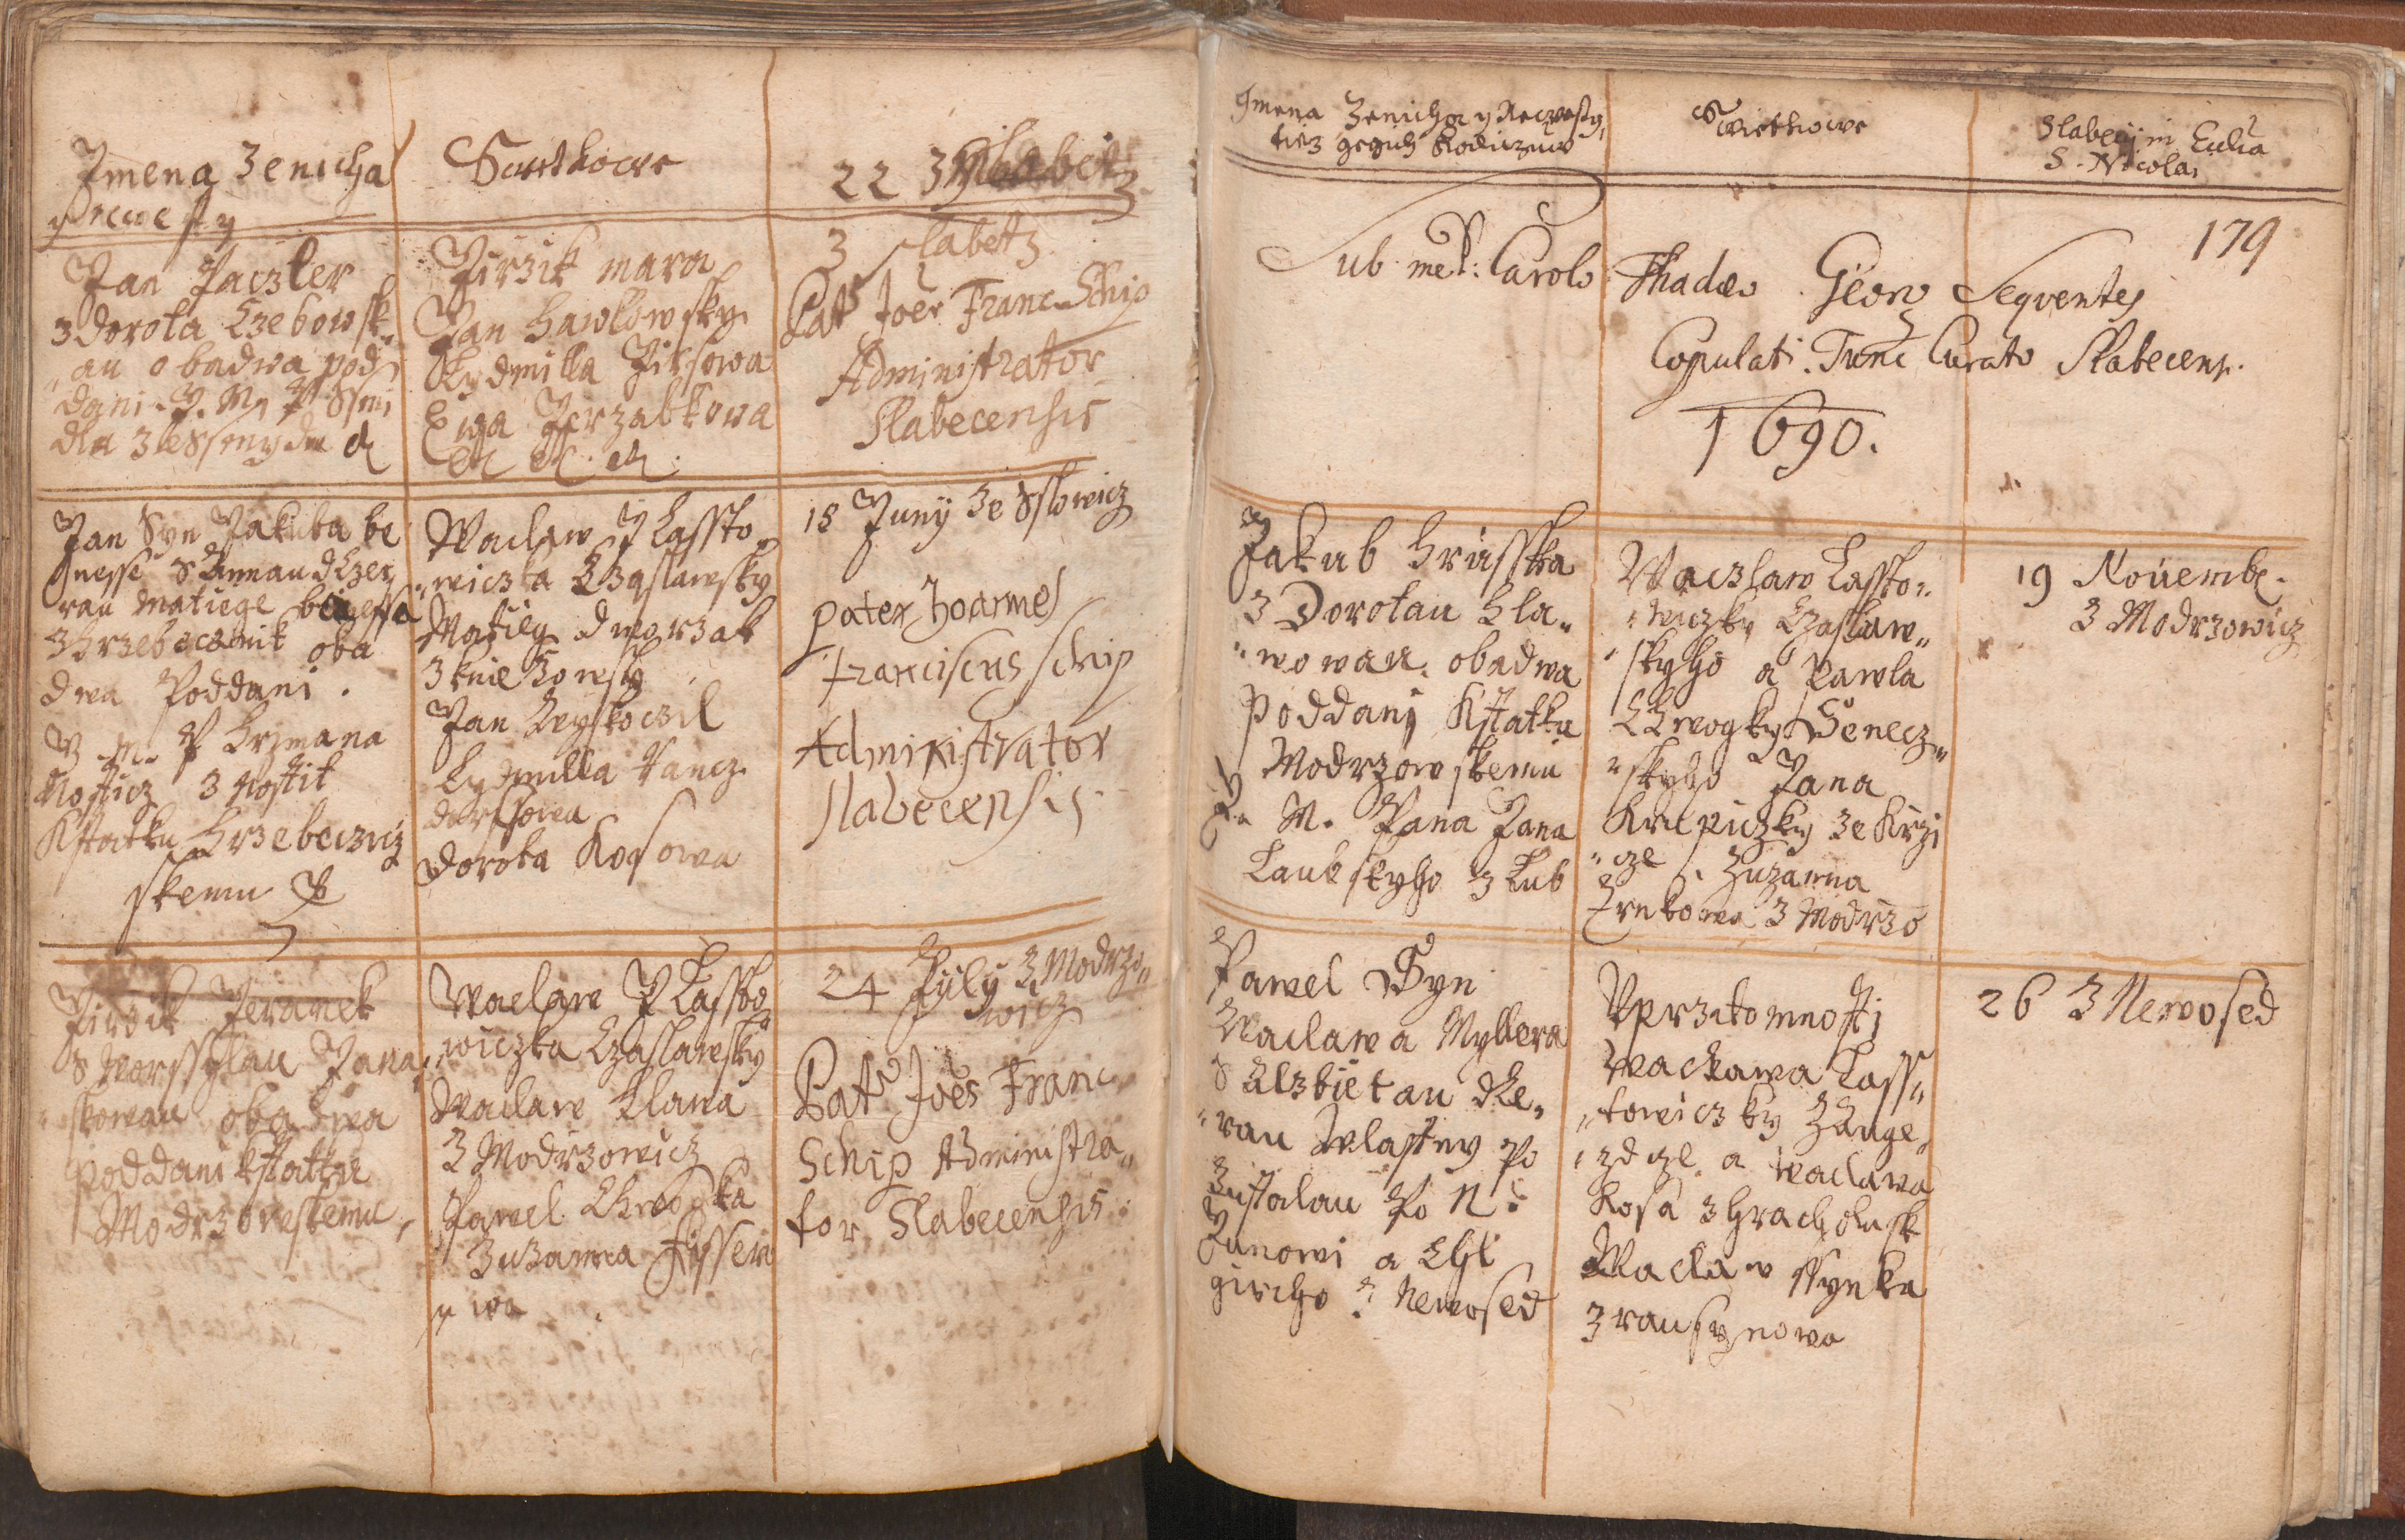 Jmena Zenicha
y newesty
Swiedkowe
22
Jan
z Dorota Czebowsk
au obadwa pod
dani J. M. P.
Jirzik mara
Jan Hawlowsky
Lydmilla Jirsowa
Ewa Jerzabkowa
etc etc. etc.
3 slabetz
Pat Joes Franc. Schip
Administrator
Slabecensis
Jan Syn Jakuba be
nesse S Annau dczer
rau Matiege
z Hrzebecznik oba
dwa Poddani.
J. M. P Hrzmana
Nosticz z Nostit
kstatku Hrzebecznicz
skemu
Waclaw P Lassto
wiczka Czaslawsky
Matieg dworzak
z kniezowsy
Jan Wyskoczil
Lydmilla
Dorota Kosowa
18 Juny ze Sslowicz
pater Joannes
Franciscus Schip
Administrator
slabecensis
Jirzik Jeranek
S Worssylau Jana
skowau obadwa
poddani kstatku
Modrzowskemu
Waclaw P Lassto
wiczka Czaslawsky
Waclaw Hlawa
z Modrzowicz
Pawel Chwogka
Zuzanna Fissero
wa
24 July z Modrzo
wicz
Pat Joes Franc
Schip Administra
tor Slabecensis
Jmena Zenicha y Newesty,
tiez gegich Rodiczuw
Swiedkowe
Slabecij in Eccla
S. Nicolai
179
Sub me P: Carolo Thadaeo Georg Seqventes
Copulati. Tunc Curato Slabecens.
1690.
Jakub Hrusska
z Dorotau Hla
wowau. obadwa
Poddanj kstatku
Modrzowskemu
J. M. Pana Jana
Laubskyho z Lub
Waczlaw Lassto
wiczky Czaslaw
skyho a Pawla
Chwogky Senecz
skyho Jana
Krupiczky ze Krzi
cze. Zuzanna
z Modrzo
19 Nouembr.
z Modrzowicz
Pawel Syn
Waclawa Myllera
S Alzbietau dce
rau wlastny po
zustalau Po N:
Junowi a Cht
giricho z Newosed
Vprzitomnosti
Waclawa Lass
towiczky
a Waclawa
Kosa z Hracholusk
Waclaw ssynka
z rausynowa
26 z Newosed